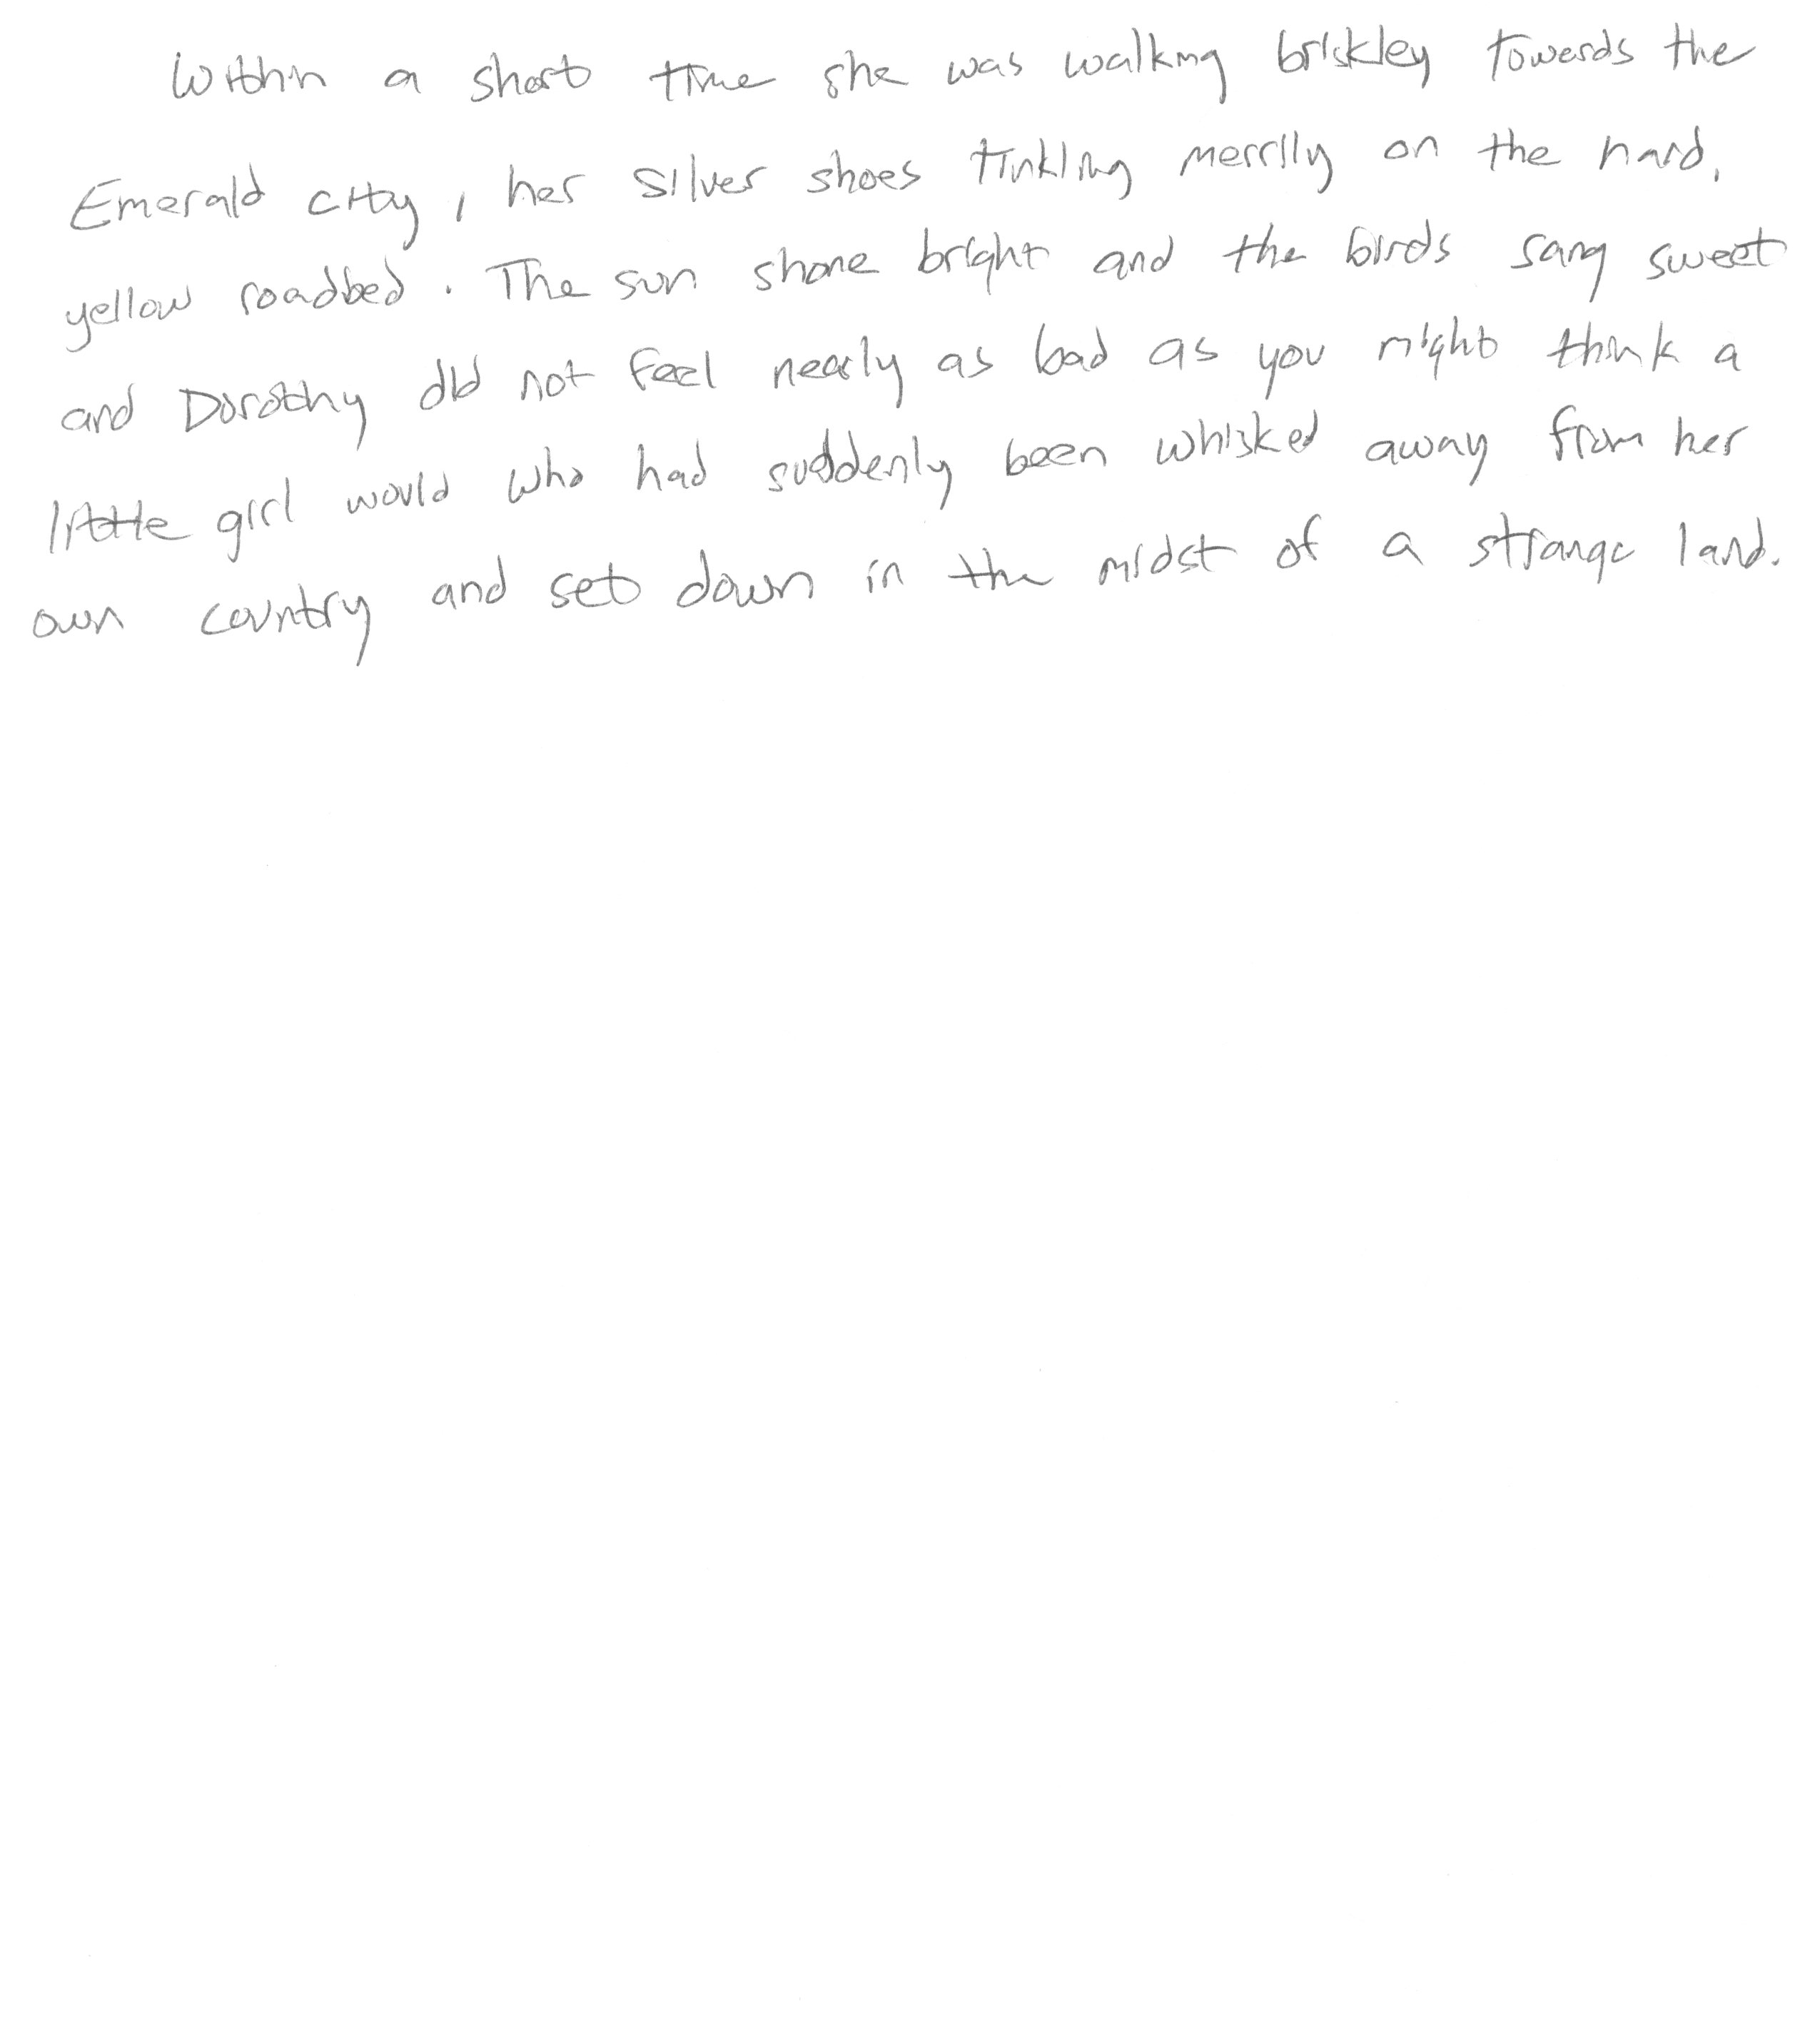 Within a short time she was walking briskley towards the
Emerald city, her silver shoes tinkling merrily on the hard,
yellow roadbed. The sun shone bright and the birds sang sweet
and Dorothy did not feel nearly as bad as you might think a
little girl would who had suddenly been whisked away from her
own country and set down in the midst of a strange land.